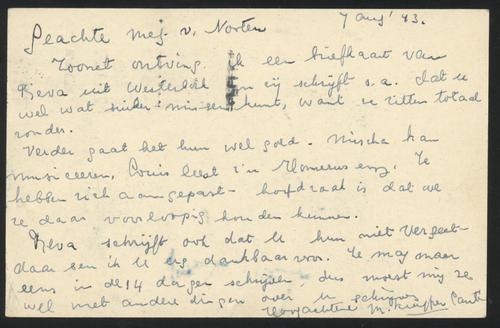 7 aug '43.
Geachte Mej. v. Norten
Zoonet ontving ik een briefkaart van
Reva uit Westerbork en zij schrijft o.a. dat U
wel wat suiker missen kunt, want ze zitten totaal
zonder.
Verder gaat het hun wel goed. Mischa kan
musiceeren, Louis leest z'n Homerus enz. Ze
hebben zich aangepast - hoofdzaak is dat we
ze daar voorloopig houden kunnen.
Reva schrijft ook dat U hun niet vergeet -
daar ben ik U erg dankbaar voor. Ze mag maar
eens in de 14 dagen schrijven, dus moest mij ze
wel met andere dingen over U schrijven
Hoogachtend M. Kuyper